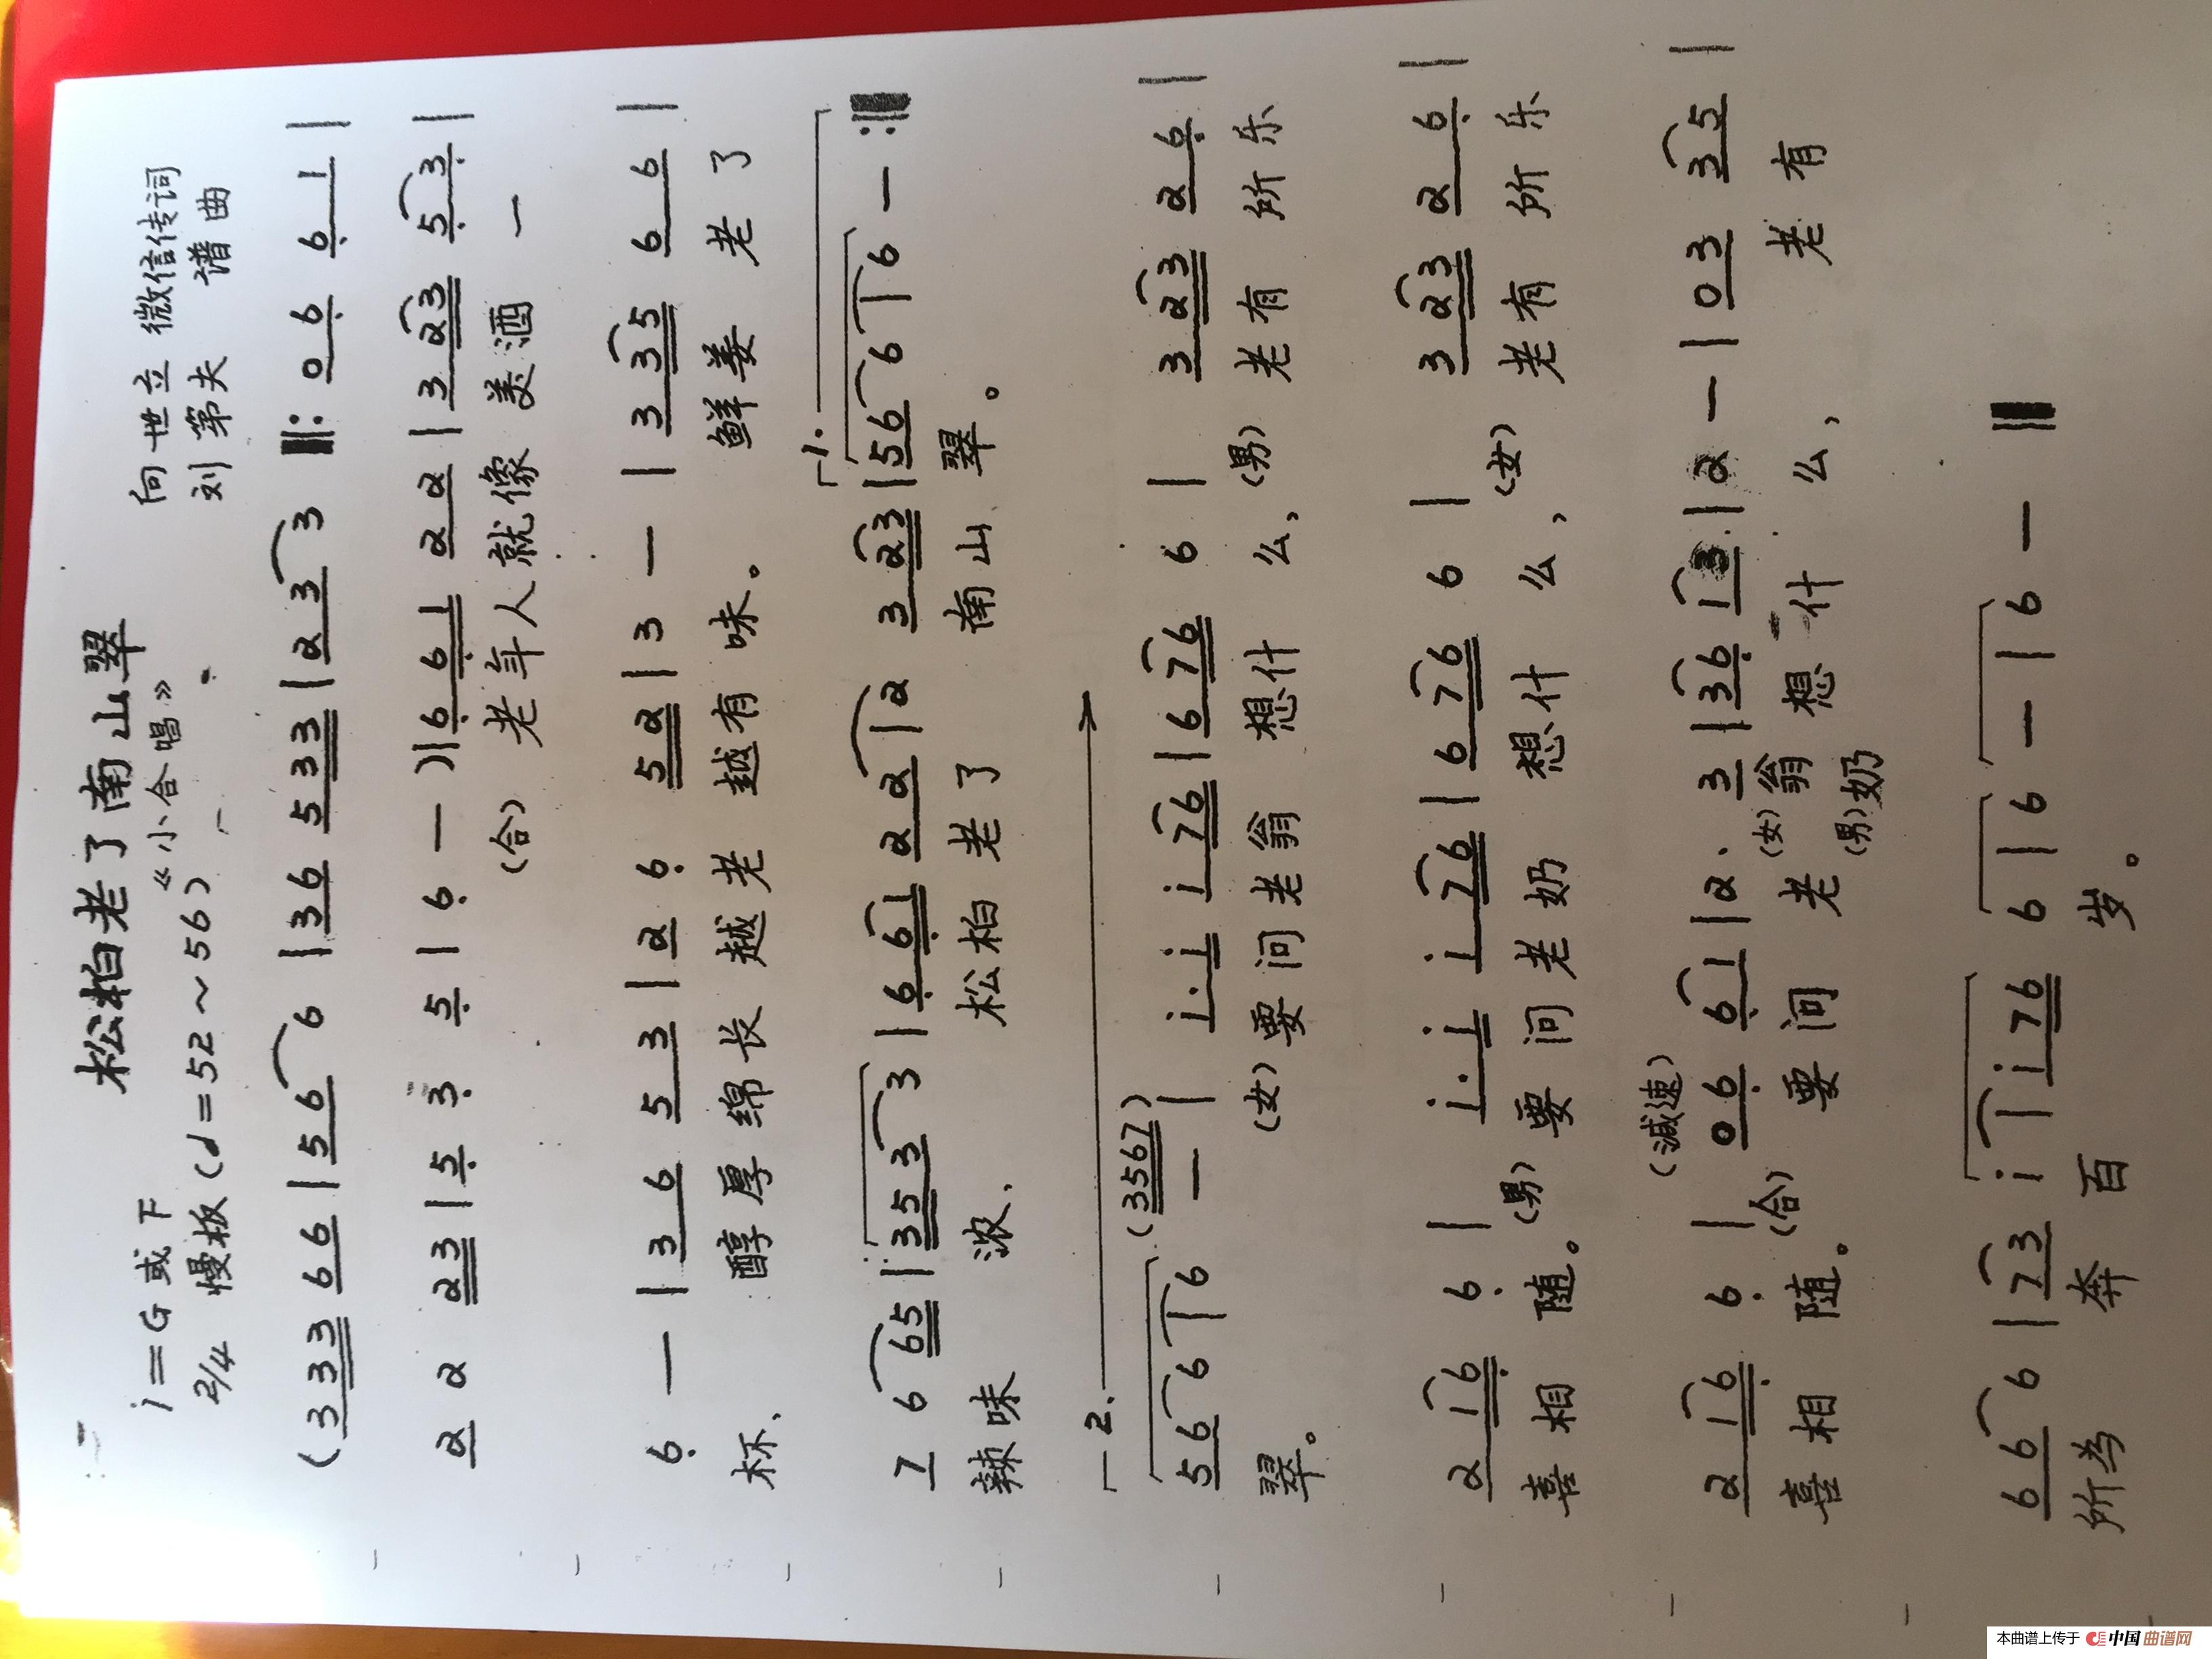 松柏老了南山翠
《小合唱》
i=G或下
2/4 慢板(♩=52～56)
向世立 微信传词
刘第夫 谱曲
(3 3 3 6 6 | 5 6 6 | 3 6 5 3 3 | 2 3 3 ‖: 0 6 6 1 |
2 2 2 3 | 5 3 5 | 6 — )| 6 6 1 2 2 | 3 2 3 5 3 |
(合) 老年人就像 美酒 一
6 — | 3 6 5 3 | 2 6 5 2 | 3 — | 3 3 5 6 6 |
杯、 醇厚绵长 越老 越有 味。 鲜姜 老了
1.
7 6 6 5 | 3 5 3 3 | 6 6 1 2 2 | 2 3 2 3 | 5 6 6 | 6 — :‖
辣味 浓、 松柏 老了 南山 翠。
2. (3567)
5 6 6 | 6 — | i. i i 7 6 | 6 7 6 6 | 3 2 3 2 6 |
翠。 (女)要问老翁 想什 么, (男)老有 所乐
2 1 6 6 | i. i i 7 6 | 6 7 6 6 | 3 2 3 2 6 |
喜相 随。 (男)要问老奶 想什 么, (女)老有 所乐
(减速)
2 1 6 6 | 0 6 6 1 | 2. 3 | 3 6 1 3 | 2 — | 0 3 3 5 |
喜相 随。 (合) 要问 老 (女)翁 想 什 么, 老有
(男)奶
6 6 6 | 7 3 i | i 7 6 6 | 6 — | 6 — ‖
所为 奔 百 岁。
本曲谱上传于 中国曲谱网